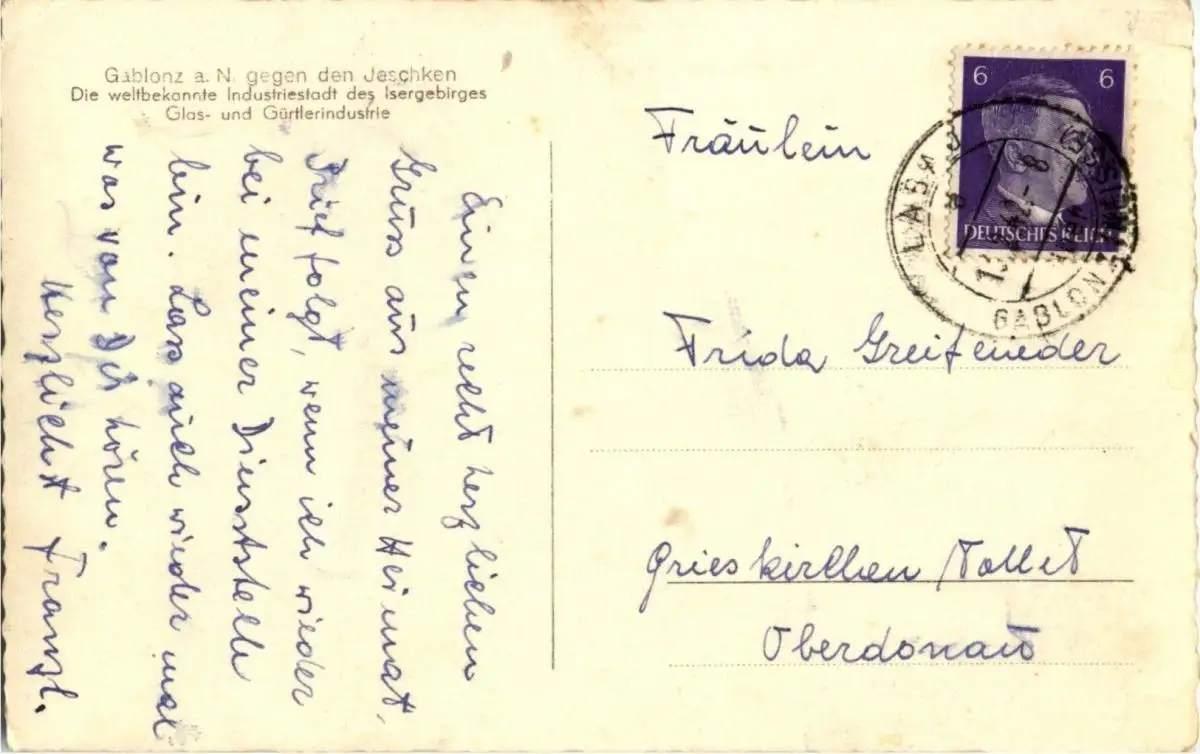 Gablonz a. N. gegen den Jeschken
Die weltbekannte Industriestadt des Isergebirges
Glas- und Gürtlerindustrie
Einen recht herzlichen
Gruss aus meiner Heimat.
Brief folgt, wenn ich wieder
bei meiner Dienststelle
bin. Lass auch wieder mal
was von Dir hören.
Herzlichst Franzl.
6 6
DEUTSCHES REICH
GABLONZ
Fräulein
Frida Greifeneder
Grieskirchen/Tollet
Oberdonau